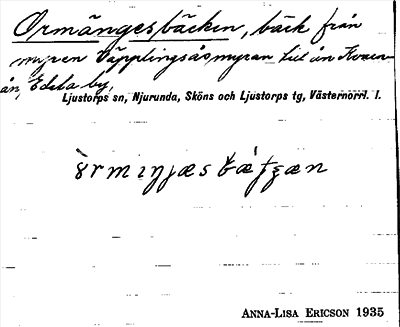 Ormängesbäcken, bäck från
myren Väpplingsåsmyran till ån Kvarn-
ån, Edsta by,
Ljustorps sn, Njurunda, Sköns och Ljustorps tg, Västernorrl. l.
ANNA-LISA ERICSON 1935